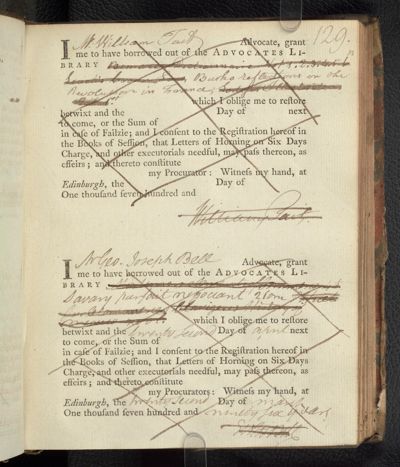 129.
I Mr William Tait Advocate, grant
me to have borrowed out of the ADVOCATES LI-
BRARY
Burks reflections on the
Revolution in France,
which I oblige me to reſtore
betwixt and the Day of next
to come, or the Sum of
in caſe of Failzie; and I conſent to the Regiſtration hereof in
the Books of Seſſion, that Letters of Horning on Six Days
Charge, and other executorials needful, may paſs thereon, as
effeirs; and thereto conſtitute
my Procurator: Witneſs my hand, at
Edinburgh, the Day of
One thouſand ſeven hundred and
William Tait.
I Mr Geo. Joseph Bell Advocate, grant
me to have borrowed out of the ADVOCATES LI-
BRARY
Savary parfait negociant 2 tom
which I oblige me to reſtore
betwixt and the twenty second Day of april next
to come, or the Sum of
in caſe of Failzie; and I conſent to the Regiſtration hereof in
the Books of Seſſion, that Letters of Horning on Six Days
Charge, and other executorials needful, may paſs thereon, as
effeirs; and thereto conſtitute
my Procurators: Witneſs my hand, at
Edinburgh, the twenty second Day of march
One thouſand ſeven hundred and ninety six years